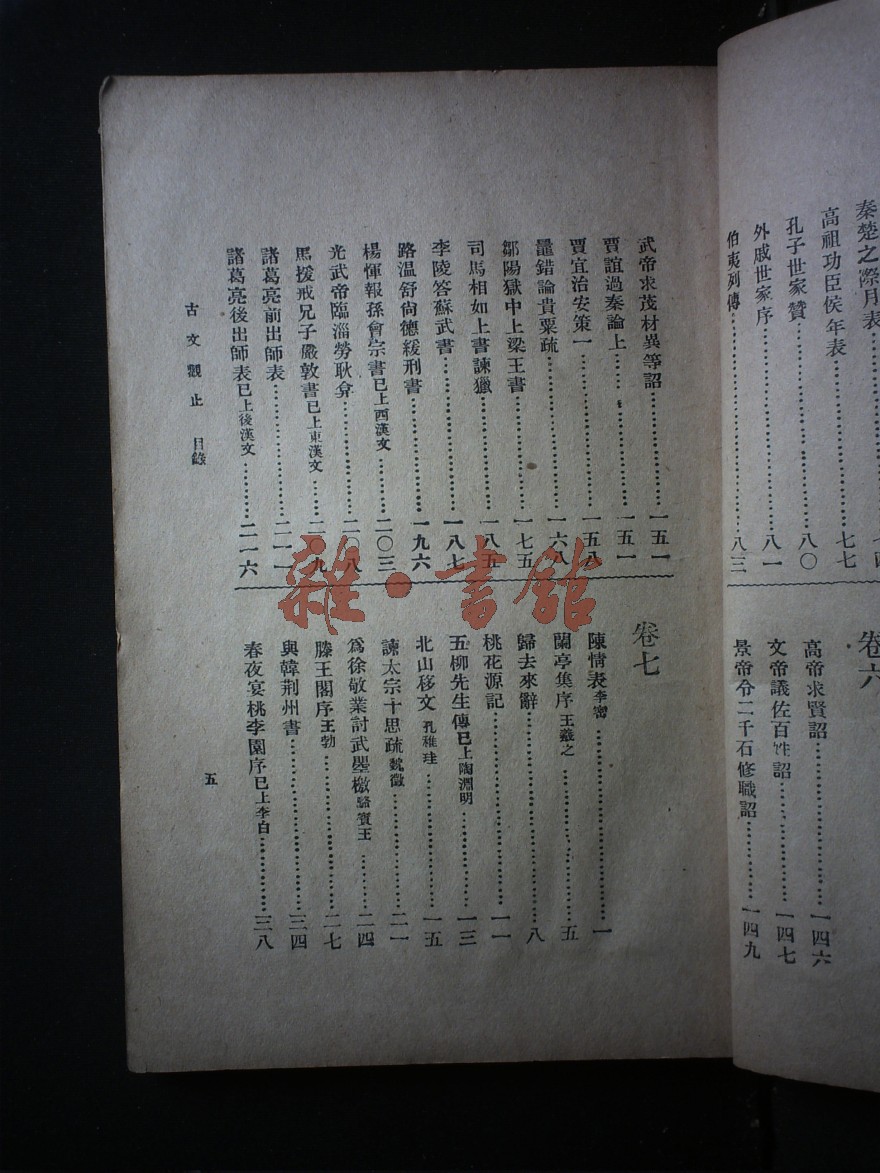 秦楚之際月表
高祖功臣侯年表……七七
孔子世家贊……八〇
外戚世家序……八一
伯夷列傳……八三
卷六
高帝求賢詔……一四六
文帝議佐百姓詔……一四七
景帝令二千石修職詔……一四九
武帝求茂材異等詔……一五一
賈誼過秦論上……一五一
賈宜治安策一……一五八
鼂錯論貴粟疏……一六八
鄒陽獄中上梁王書……一七五
司馬相如上書諫獵……一八五
李陵答蘇武書……一八七
路溫舒尙德緩刑書……一九六
楊惲報孫會宗書已上西漢文……二〇三
光武帝臨淄勞耿弇……二〇八
馬援戒兄子嚴敦書已上東漢文……二〇九
諸葛亮前出師表……二一一
諸葛亮後出師表已上後漢文……二一六
卷七
陳情表李密……一
蘭亭集序王羲之……五
歸去來辭……八
桃花源記……一一
五柳先生傳已上陶淵明……一三
北山移文孔稚珪……一五
諫太宗十思疏魏徵……二一
爲徐敬業討武曌檄駱賓王……二四
滕王閣序王勃……二七
與韓荆州書……三四
春夜宴桃李園序已上李白……三八
古文觀止 目錄
五
雜·書館